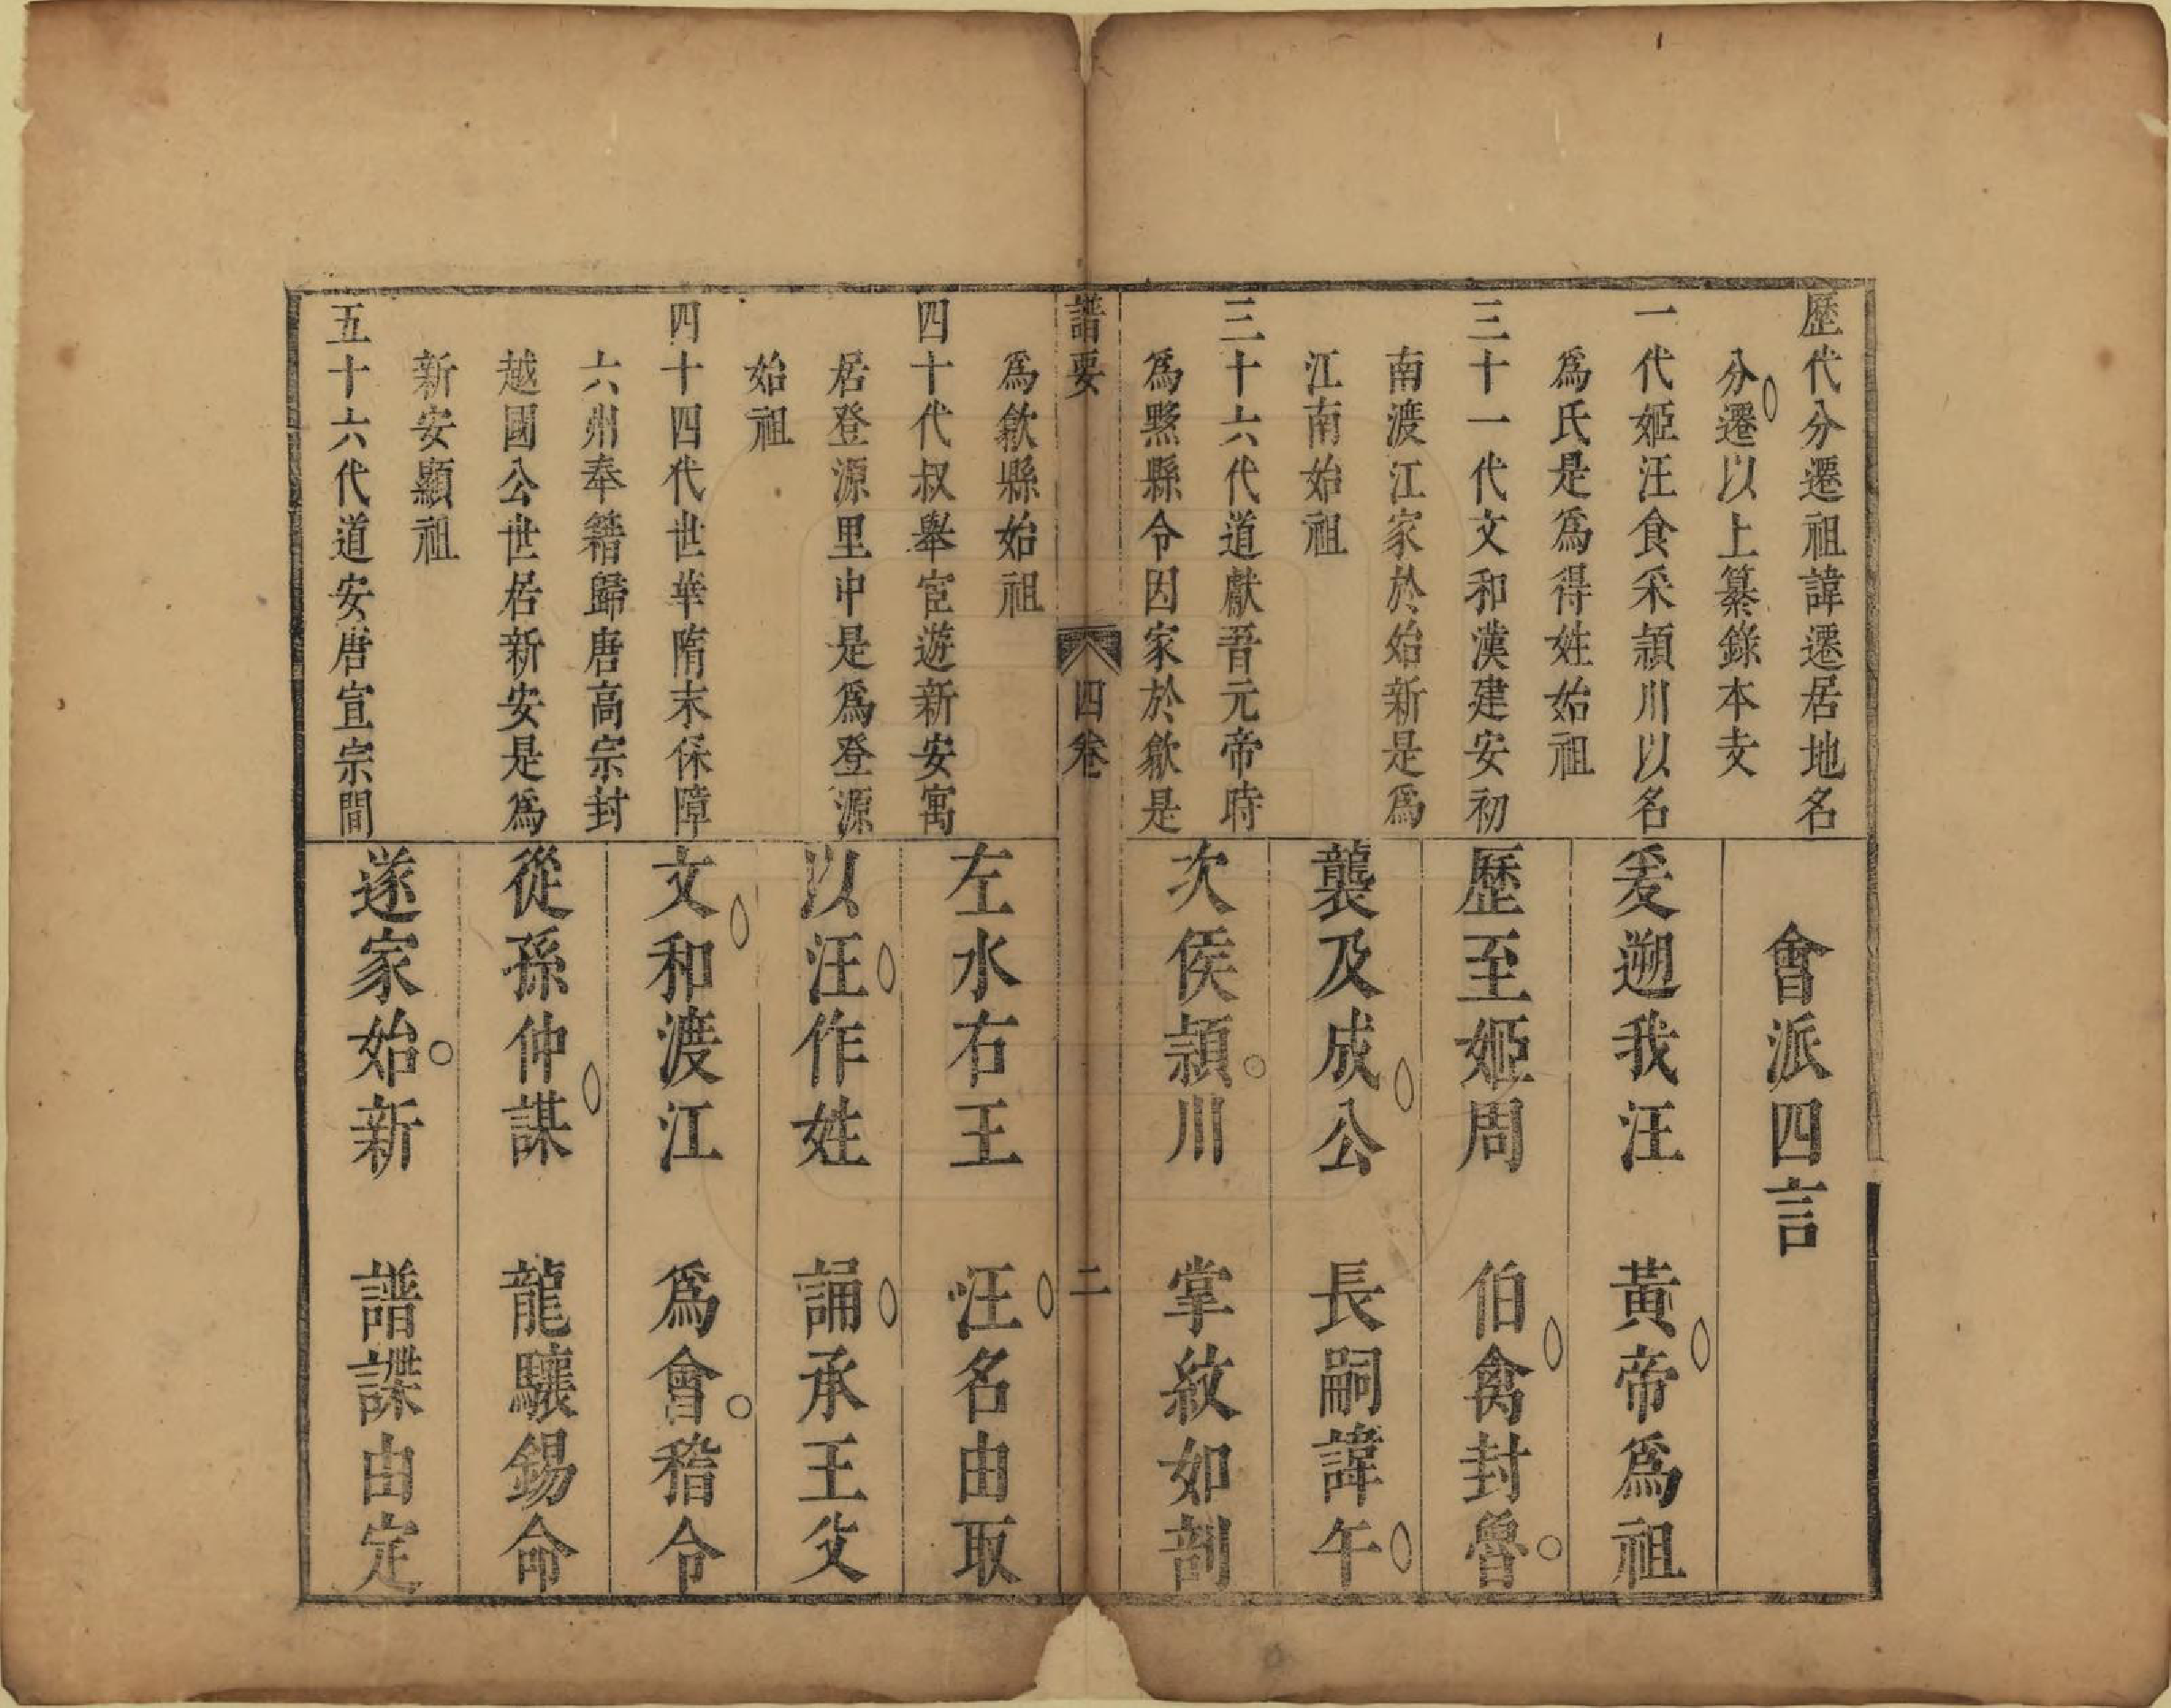 歷代分遷祖諱遷居地名
分遷以上纂錄本支
一代姬汪食采潁川以名
爲氏是爲得姓始祖
三十一代文和漢建安初
南渡江家於始新是爲
江南始祖
三十六代道獻晉元帝時
爲黟縣令因家於歙是
會派四言
爰遡我汪 黃帝爲祖
歷至姬周 伯禽封魯
襲及成公 長嗣諱午
次侯潁川 掌紋如剖
譜要 四卷 二
爲歙縣始祖
四十代叔舉宦遊新安寓
居登源里中是爲登源
始祖
四十四代世華隋末保障
六州奉籍歸唐高宗封
越國公世居新安是爲
新安顯祖
五十六代道安唐宣宗間
左水右王 汪名由取
以汪作姓 誦承王父
文和渡江 爲會稽令
從孫仲謀 龍驤錫命
遂家始新 譜諜由定